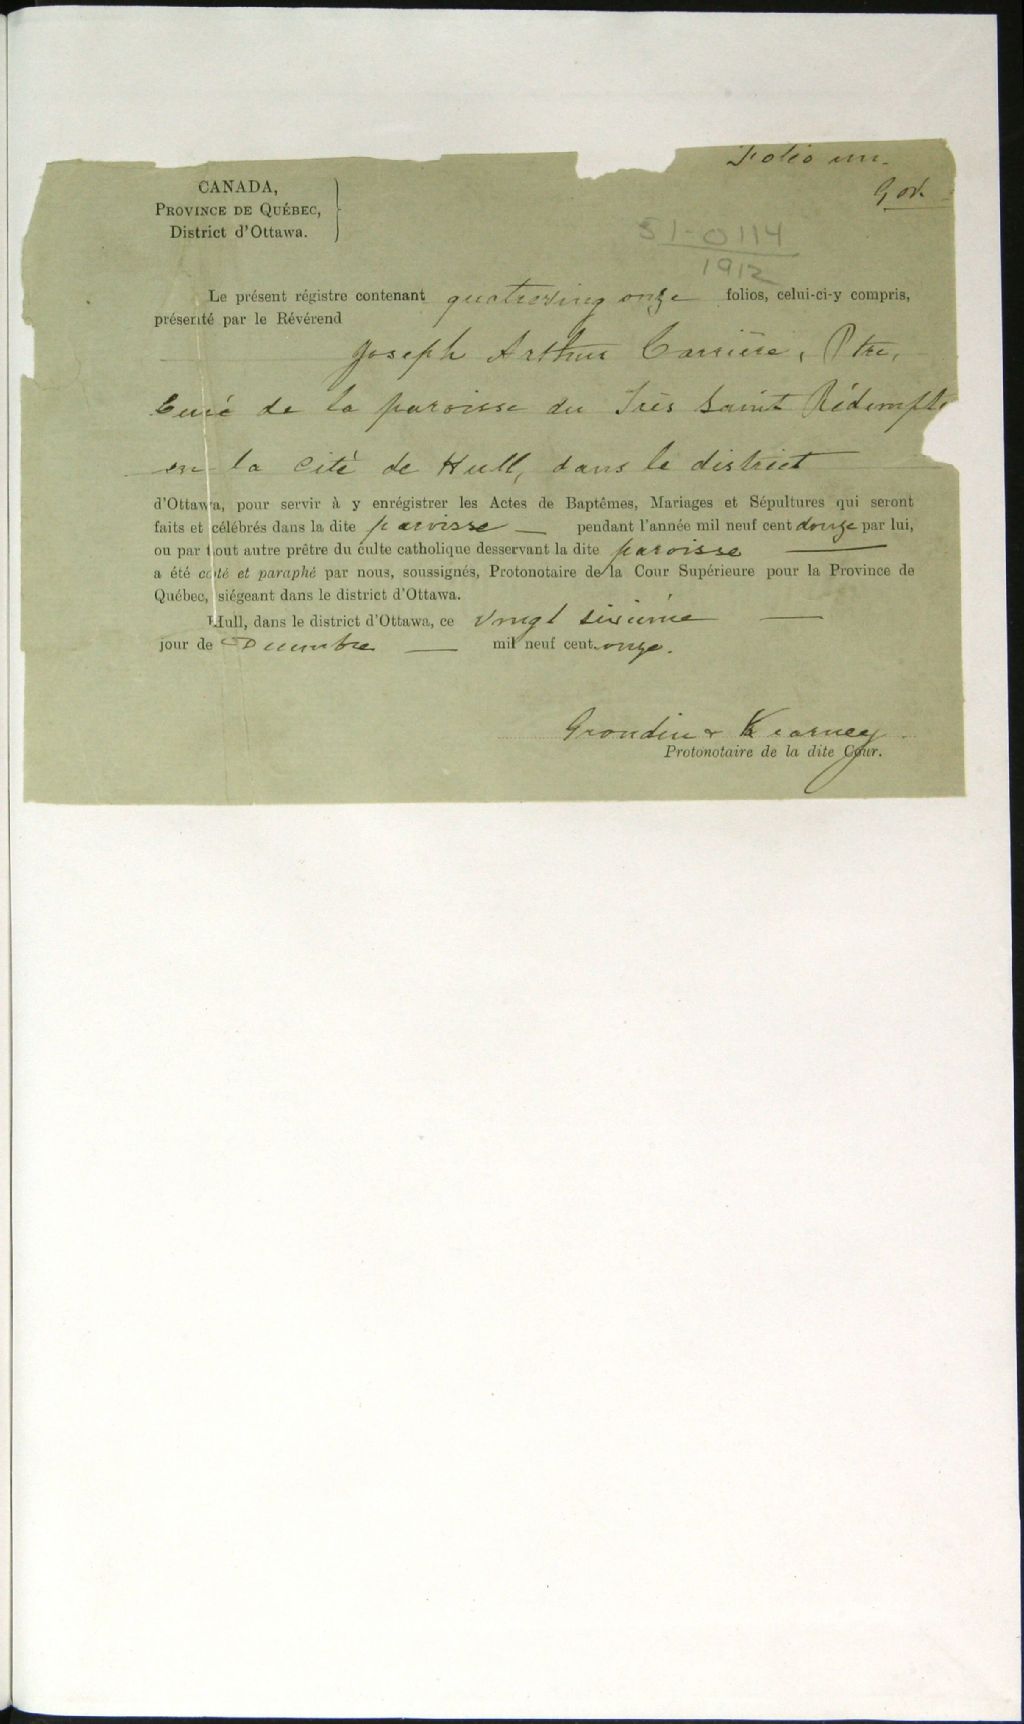 Folio un.
CANADA,
PROVINCE DE QUÉBEC,
District d'Ottawa.
51-0114
1912
Le présent régistre contenant quatrevingt onze folios, celui-ci-y compris,
présenté par le Révérend
Joseph Arthur Carrière, Ptre,
Curé de la paroisse du Très Saint Rédempte
en la Cité de Hull, dans le district
d'Ottawa, pour servir à y enrégistrer les Actes de Baptêmes, Mariages et Sépultures qui seront
faits et célébrés dans la dite paroisse — pendant l'année mil neuf cent douze par lui,
ou par tout autre prêtre du culte catholique desservant la dite paroisse —
a été coté et paraphé par nous, soussignés, Protonotaire de la Cour Supérieure pour la Province de
Québec, siégeant dans le district d'Ottawa.
Hull, dans le district d'Ottawa, ce vingt sixième —
jour de Décembre — mil neuf cent onze.
Grondin & Kearney
Protonotaire de la dite Cour.